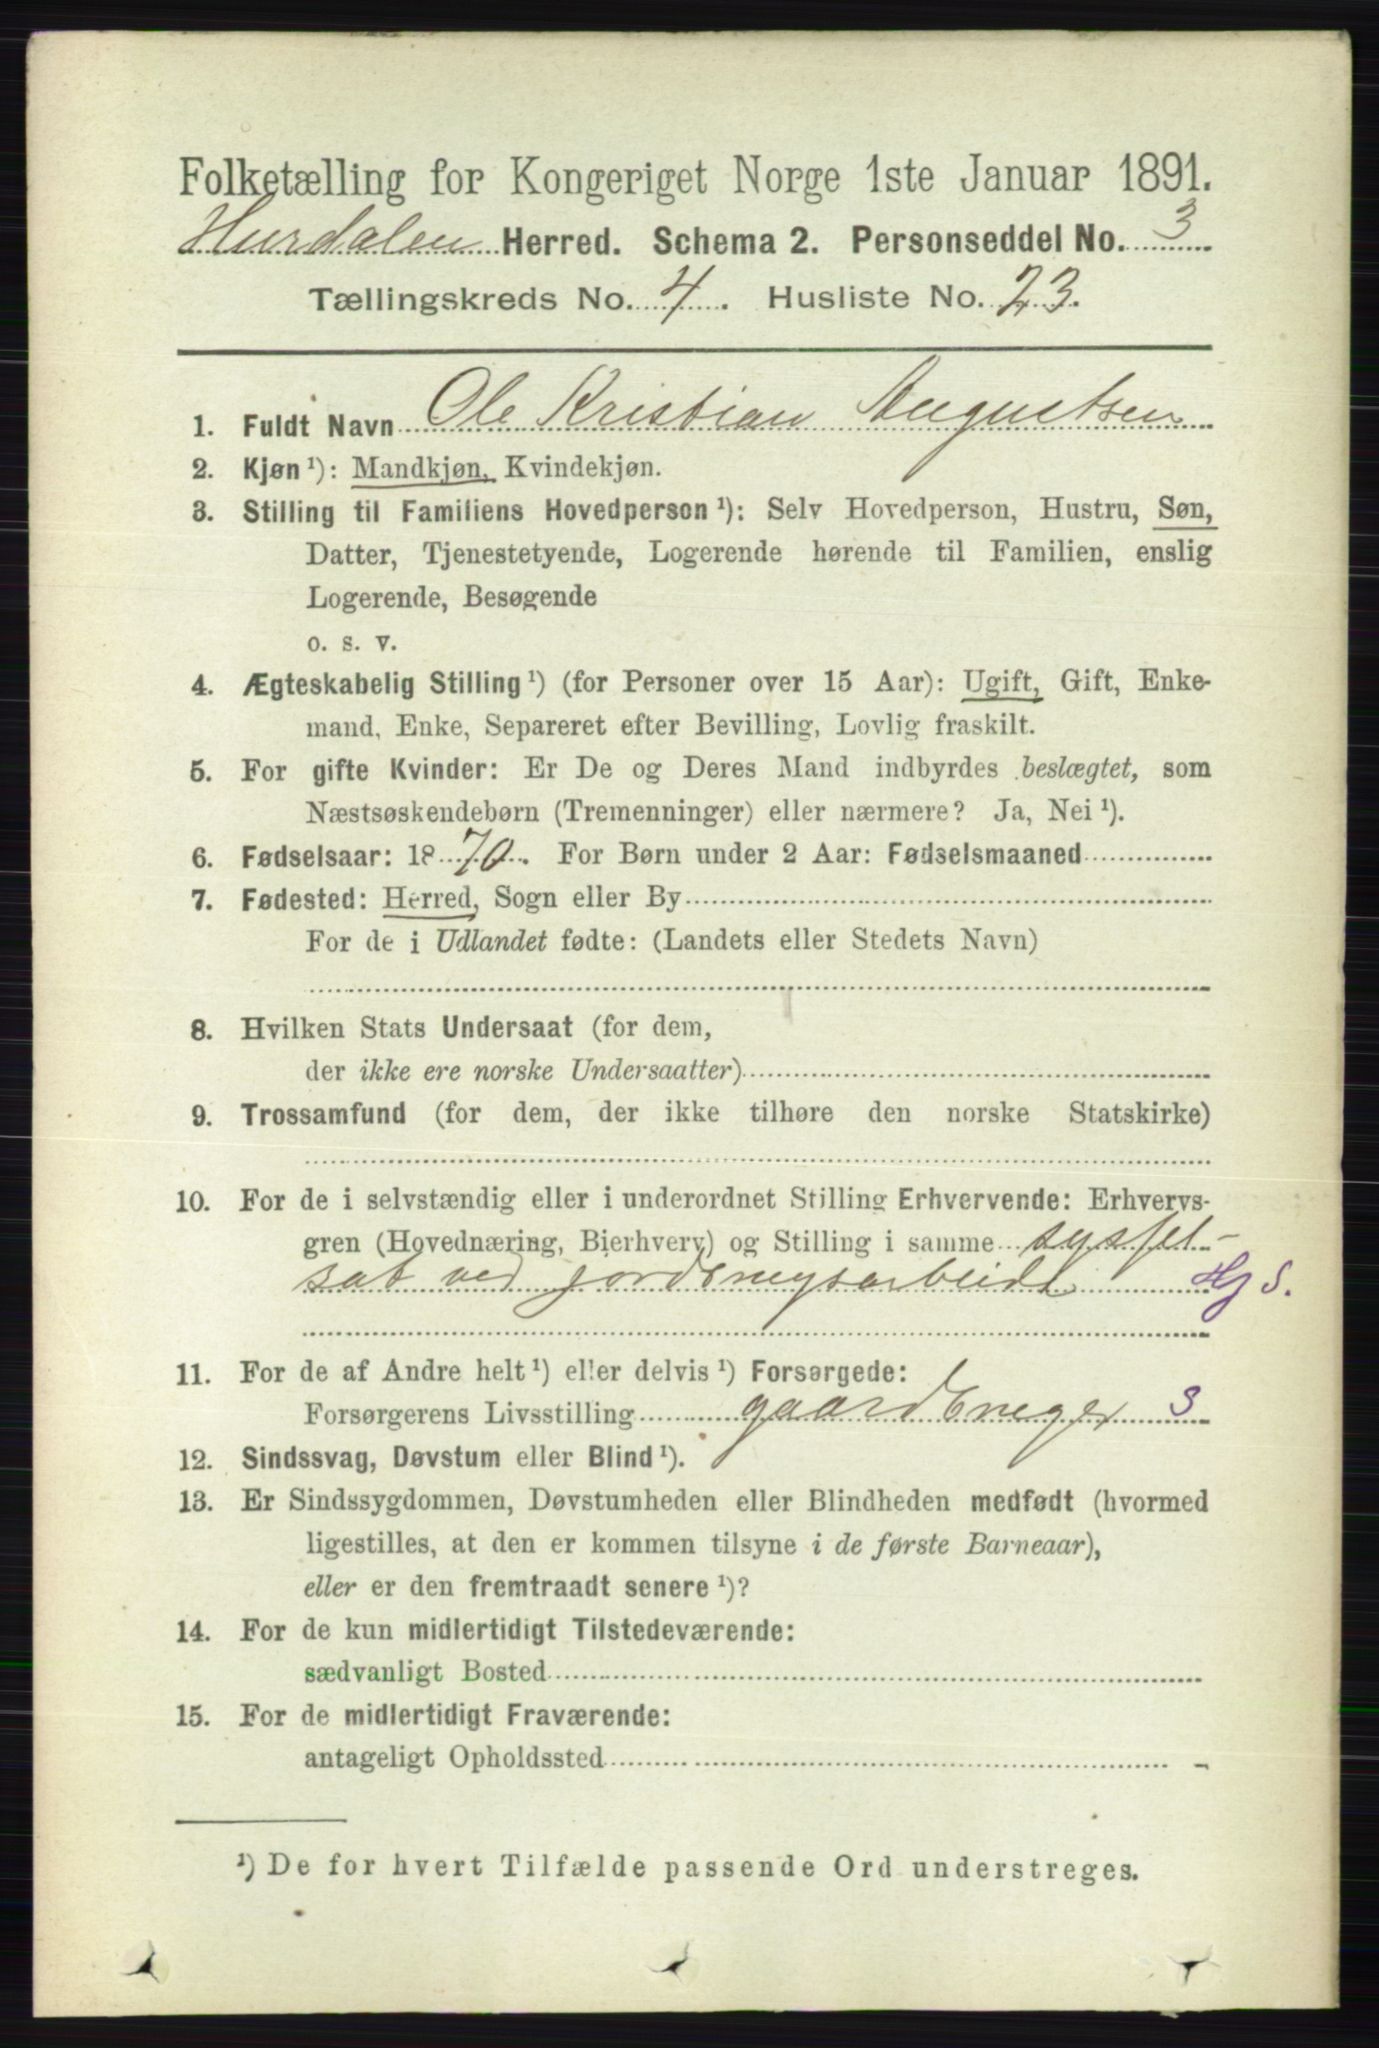 Folketælling for Kongeriget Norge 1ste Januar 1891.
Hurdalen Herred. Schema 2. Personseddel No. 3
Tællingskreds No. 4. Husliste No. 23.
1. Fuldt Navn Ole Kristian Augustsen
2. Kjøn ¹): Mandkjøn, Kvindekjøn.
3. Stilling til Familiens Hovedperson ¹): Selv Hovedperson, Hustru, Søn,
Datter, Tjenestetyende, Logerende hørende til Familien, enslig
Logerende, Besøgende
o. s. v.
4. Ægteskabelig Stilling ¹) (for Personer over 15 Aar): Ugift, Gift, Enke-
mand, Enke, Separeret efter Bevilling, Lovlig fraskilt.
5. For gifte Kvinder: Er De og Deres Mand indbyrdes beslægtet, som
Næstsøskendebørn (Tremenninger) eller nærmere? Ja, Nei ¹).
6. Fødselsaar: 1870. For Børn under 2 Aar: Fødselsmaaned
7. Fødested: Herred, Sogn eller By
For de i Udlandet fødte: (Landets eller Stedets Navn)
8. Hvilken Stats Undersaat (for dem,
der ikke ere norske Undersaatter)
9. Trossamfund (for dem, der ikke tilhøre den norske Statskirke)
10. For de i selvstændig eller i underordnet Stilling Erhvervende: Erhvervs-
gren (Hovednæring, Bierhverv) og Stilling i samme syssel-
sat ved jordbrugsarbeide Hj S.
11. For de af Andre helt ¹) eller delvis ¹) Forsørgede:
Forsørgerens Livsstilling gaardbruger S
12. Sindssvag, Døvstum eller Blind ¹).
13. Er Sindssygdommen, Døvstumheden eller Blindheden medfødt (hvormed
ligestilles, at den er kommen tilsyne i de første Barneaar),
eller er den fremtraadt senere ¹)?
14. For de kun midlertidigt Tilstedeværende:
sædvanligt Bosted
15. For de midlertidigt Fraværende:
antageligt Opholdssted
¹) De for hvert Tilfælde passende Ord understreges.